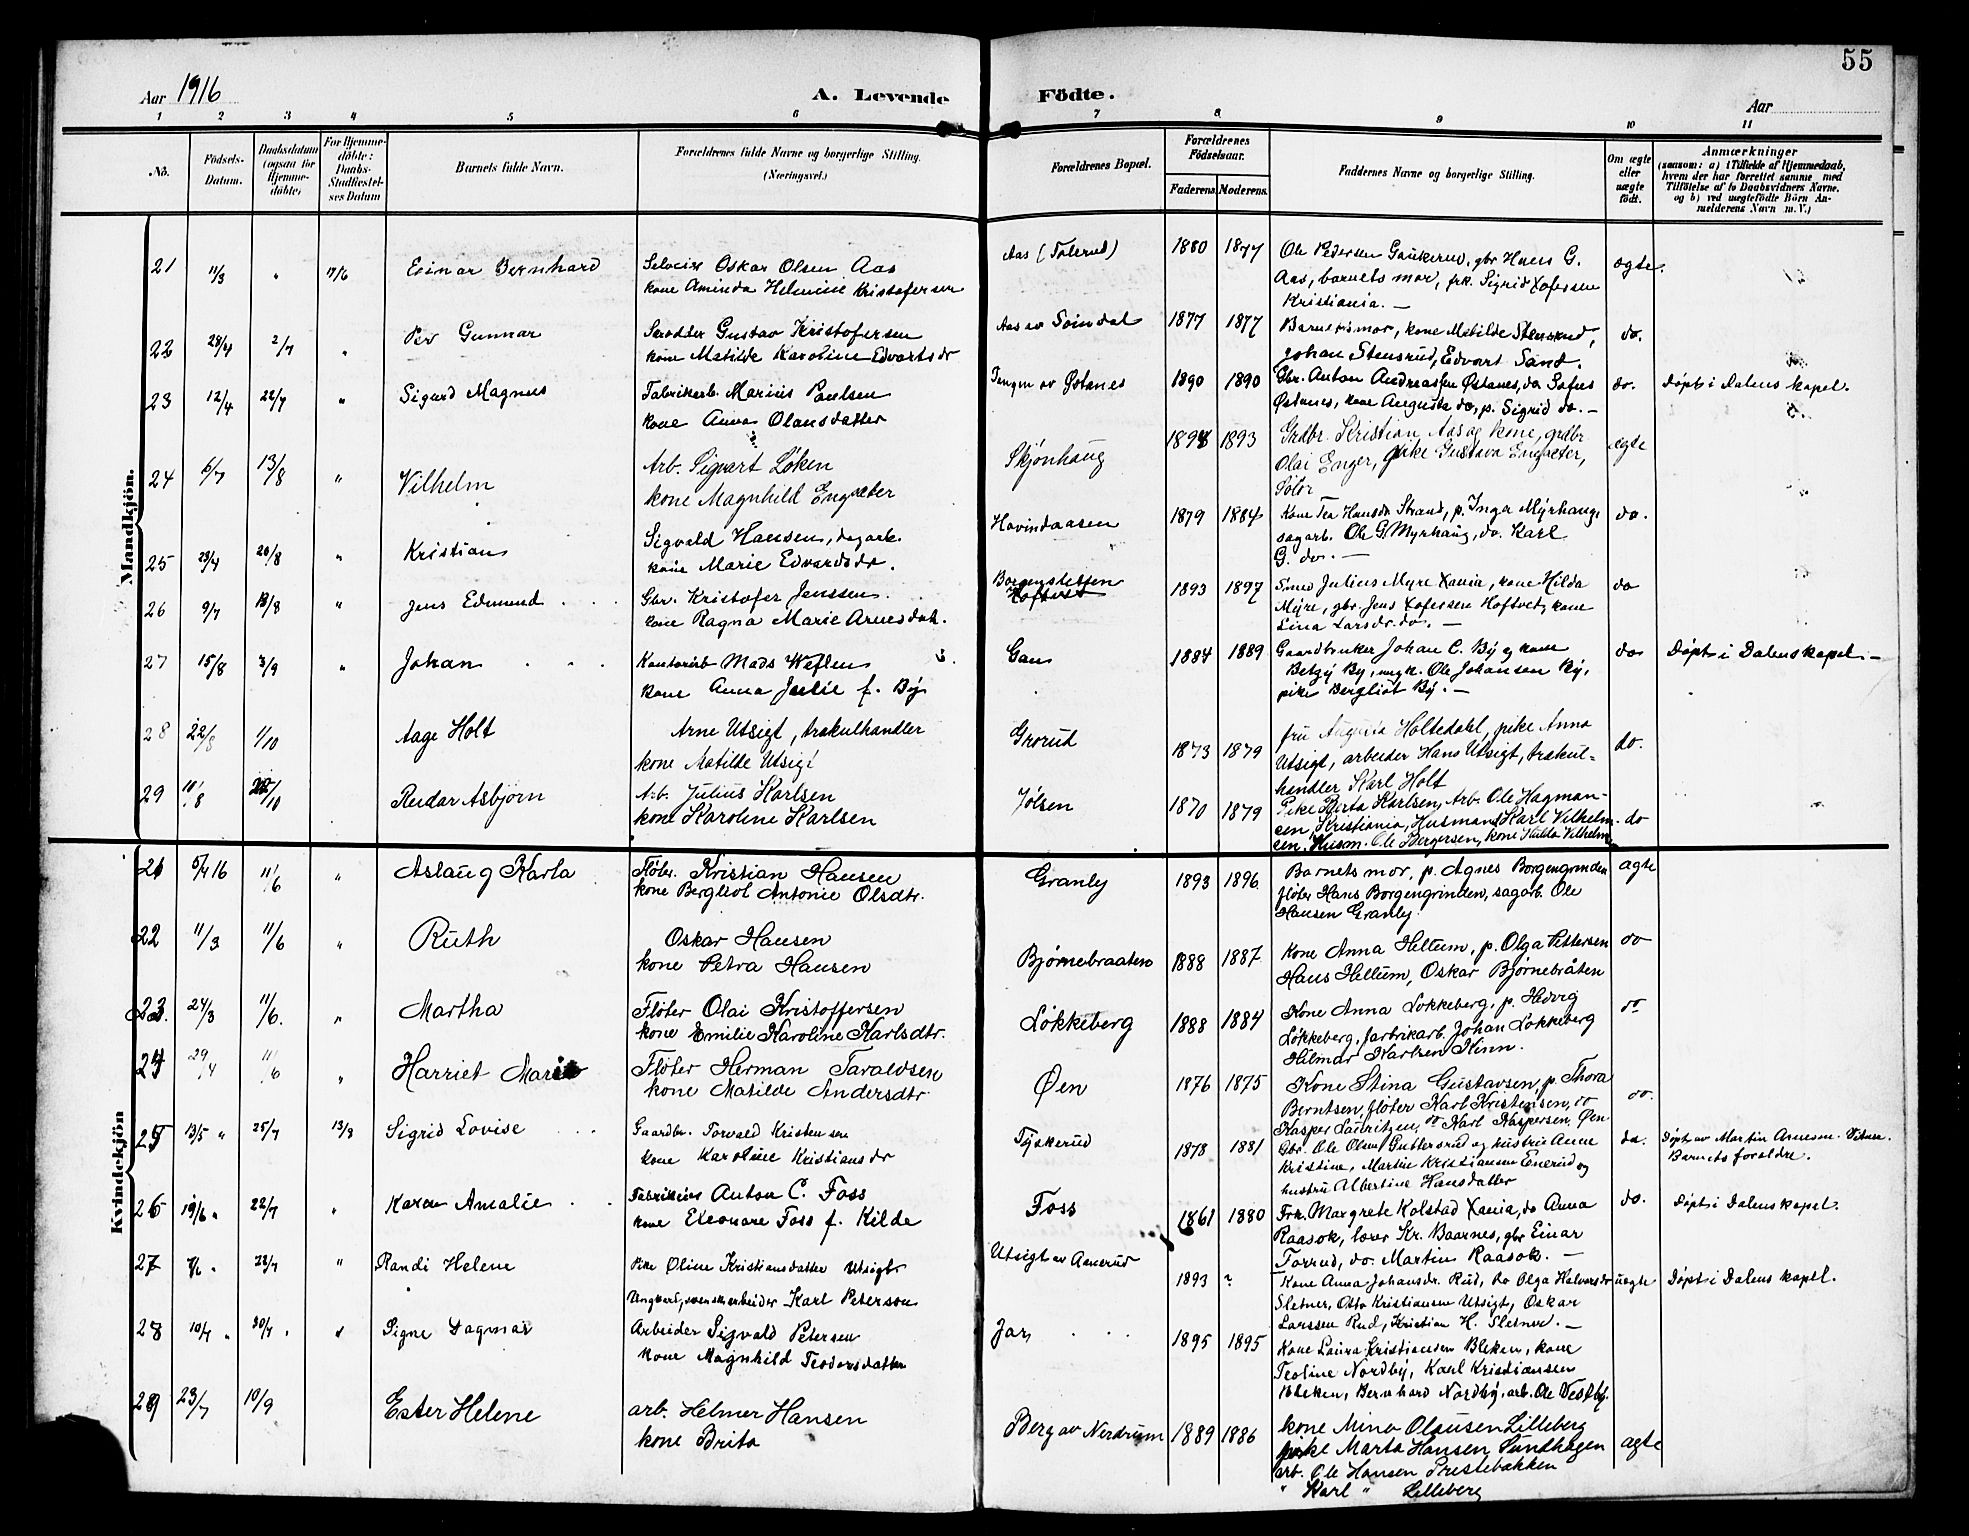 55
Aar 1916
A. Levende Födte.
Aar
1 2 3 4 5 6 7 8 9 10 11
No.
Födsels-Datum.
Daabsdatum (ogsaa for Hjemmedöbte)
For Hjemmedöbte: Daabs-Stadfæstelses Datum
Barnets fulde Navn.
Forældrenes fulde Navne og borgerlige Stilling. (Næringsvei.)
Forældrenes Bopæl.
Forældrenes Födselsaar.
Faderens. Moderens.
Faddernes Navne og borgerlige Stilling.
Om ægte eller uægte födt.
Anmærkninger
(saasom: a) i Tilfælde af Hjemmedaab, hvem der har forrettet samme med Tilföielse af to Daabsvidners Navne. og b) ved uægtefödte Börn Anmelderens Navn m. V.)
Mandkjön.
21 11/3 " 17/6 Einar Bernhard
Oskar Olsen Aas
kone Aminda Helmine Kristofersen
Aas (Tolerud) 1880 1877
Ole Pedersen Gaukerud, gbr Hans G.
Aas, barnets mor, frk. Sigrid Xofersen
Kristiania. —
ægte.
22 28/4 2/7 " Per Gunnar
Skrædder Gustav Kristofersen
kone Matilde Karoline Edvartsdr
Aas av Soindal 1877 1877
Barnets mor, kone Matilde Stensrud,
Johan Stensrud, Edvart Sand.
do.
23 12/4 22/7 " Sigurd Magnus
Fabrikarb. Marius Paulsen
kone Anna Olausdatter
Tangen av Østanes 1890 1890
Gbr. Anton Andreassen Østanes, do Sofus
Østanes, kone Augusta do, p. Sigrid do. —
do. Døpt i Dalens kapel.
24 6/7 13/8 " Vilhelm
Arb. Sigvart Løken
kone Magnhild Engsæter
Skjønhaug 1894 1893
Grdbr. Kristian Aas og kone, grdbr
Olai Enger, pike Gustava Engsæter,
Solør
ægte
25 23/4 20/8 " Kristian
Sigvald Hansen, dagarb.
kone Marie Edvardsdr.
Hovindaasen 1879 1884
Kone Tea Hansdr Strand, p. Inga Myrhaug,
sagarb. Ole G. Myrhaug, do. Karl
G. do. —
do.
26 9/7 13/8 " Jens Edmund
Gbr. Kristofer Jenssen
kone Ragna Marie Arnesdatt.
Borgenstetten
Hoftvet 1893 1897
Smed Julius Myre Xania, kone Hilda
Myre, gbr. Jens Xofersen Hoftvet, kone
Lina Larsdr. do. —
do
27 15/8 3/9 " Johan
Kontorist Mads Weflen
kone Anna Julie f. By
Gan 1884 1889
Gaardbruker Johan C. By og kone
Betzy By, ungk. Ole Johansen By,
pike Bergliot By. —
do Døpt i Dalens kapel —
28 22/8 1/10 Aage Holt
Arne Utsigt, trækulhandler
kone Matilde Utsigt
Grorud 1873 1879
fru Augusta Holtedahl, pike Anna
Utsigt, arbeider Hans Utsigt, trækul-
handler Karl Holt
do.
29 11/8 22/10 Reidar Asbjørn
Arb. Julius Karlsen
kone Karoline Karlsen
Jølsen 1870 1879
Pike Berta Karlsen, Arb. Ole Hagman-
sen, Kristiania, Husmand Karl Vilhelm-
sen, Husm. Ole Bergersen, kone Hulda Vilhelms
do
Kvindekjön
21 5/4 16 11/6 " Aslaug Karla
Fløter. Kristian Hansen
kone Bergliot Antonie Olsdtr.
Granly 1893 1896
Barnets mor, p. Agnes Borgengrinden
fløter Hans Borgengrinden, sagarb. Ole
Hansen Granly
ægte
22 11/3 11/6 " Ruth
Oskar Hansen
kone Petra Hansen
Bjørnebraaten 1888 1887
Kone Anna Hellum, p. Olga Pettersen
Hans Hellum, Oskar Bjørnebråten
do
23. 24/3 11/6. " Martha
Fløter Olai Kristoffersen
kone Emilie Karoline Karlsdtr.
Løkkeberg 1888 1884
Kone Anna Løkkeberg, p. Hedvig
Løkkeberg, fabrikarb. Johan Løkkeberg
Hilmar Karlsen Kinn.
do
24 29/4 11/6 " Harriet Marie
Fløter Herman Taraldsen
kone Matilde Andersdtr
Øen 1876 1875
Kone Stina Gustavsen, p. Thora
Berntsen, fløter Karl Kristensen, do
Kasper Lauritzen, do Karl Kaspersen, Øen
do.
25 13/5 " 25/7 13/8 Sigrid Lovise
Gaardbr. Torvald Kristensen
kone Karoline Kristiansdr
Tyskerud 1878 1881
Gbr. Ole Olsen Guttersrud og hustru Anne
Kristine, Martin Kristiansen Enerud og
hustru Albertine Hansdatter
do. Døpt av Martin Arnesen. Vitner.
Barnets foreldre.
26 19/6 " 22/7 " Karen Amalie
Fabrikeier Anton C. Foss
kone Eleonore Foss f. Kilde
Foss 1861 1880
Frk. Margrete Kolstad Xania, do Anna
Raasok, lærer Kr. Baarnes, gbr Einar
Forrud, do. Martin Raasok. —
do. Døpt i Dalens kapel.
27 7/6 " 22/7 " Randi Helene
Pike Oline Kristiansdatter Utsigt
Ungkarl, svensk arbeider Karl Peterson
Utsigt av Aanerud 1893 ?
Kone Anna Johansdr. Rud, do Olga Halvorsdr
Sletner, Otto Kristiansen Utsigt, Oskar
Larssen Rud, Kristian H. Sletner. —
uægte Døpt i Dalens kapel.
28 10/4 " 30/7 " " Signe Dagmar
Arbeider Sigvald Petersen
kone Magnhild Teodorsdatter
Jar 1895 1895
Kone Laura Kristiansen Bleken, kone
Teoline Nordby, Karl Kristiansen
Bleken, Bernhard Nordby, arb. Ole Vestby.
29 23/7 10/9 Ester Helene
arb. Helmer Hansen
kone Brita
Berg av Nerdrum 1889 1886
kone Mina Olausen Lilleberg
pike Marta Hansen Sundhagen
arb. Ole Hansen Prestebakken
" Karl " Lilleberg
ægte